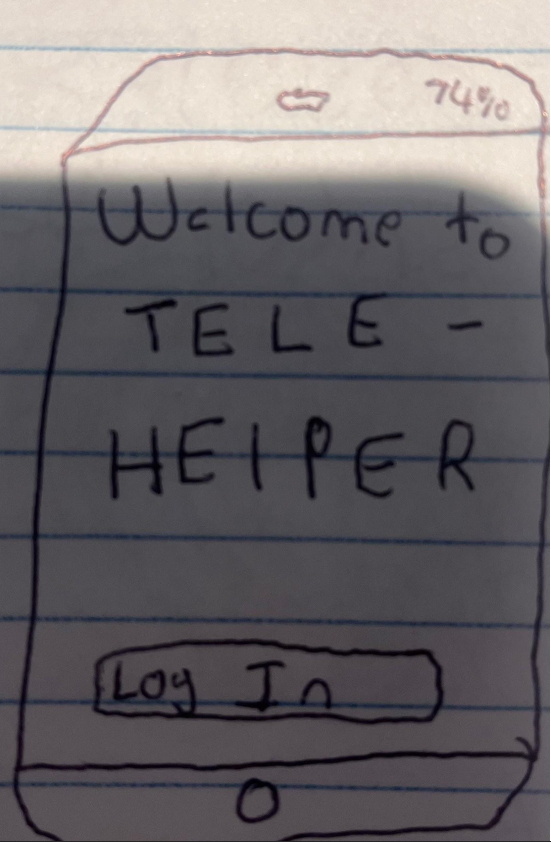 74%
Welcome to
TELE -
HElPER
Log In